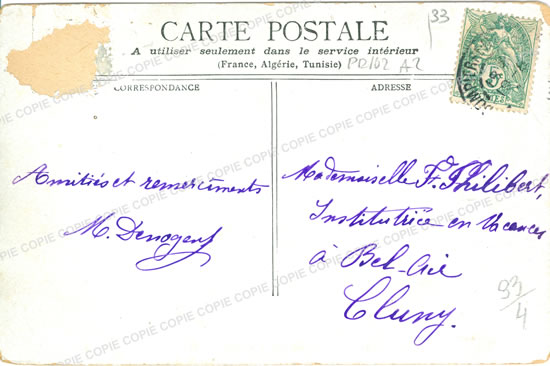 CARTE POSTALE
A utiliser seulement dans le service intérieur
(France, Algérie, Tunisie)
PD/62 A2
33
CORRESPONDANCE
ADRESSE
Amitiés et remerciments
Mademoiselle F. Philibert,
Institutrice en Vacances
à Bel-Air
Cluny.
93/4
COPIE COPIE COPIE COPIE COPIE COPIE